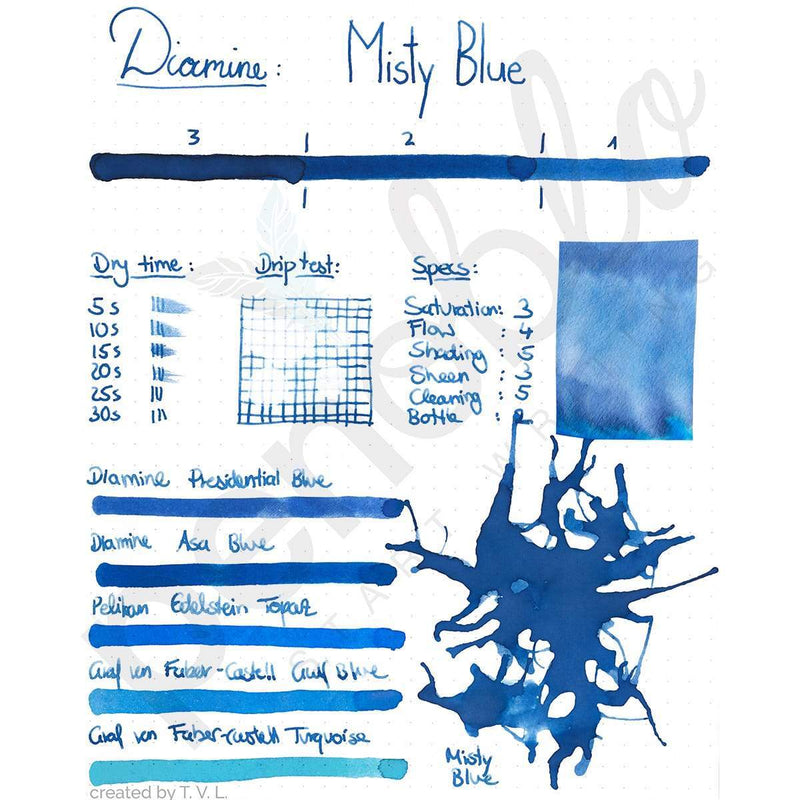 Diamine: Misty Blue
3 2 1
Dry time:
5s
10s
15s
20s
25s
30s
Drip test:
Specs:
Saturation: 3
Flow : 4
Shading : 5
Sheen : 3
Cleaning : 5
Bottle : 2
Diamine Presidential Blue
Diamine Asa Blue
Pelikan Edelstein Topaz
Graf von Faber-Castell Gulf Blue
Graf von Faber-Castell Turquoise
Misty
Blue
penoblo
START WRITING
created by T. V. L.